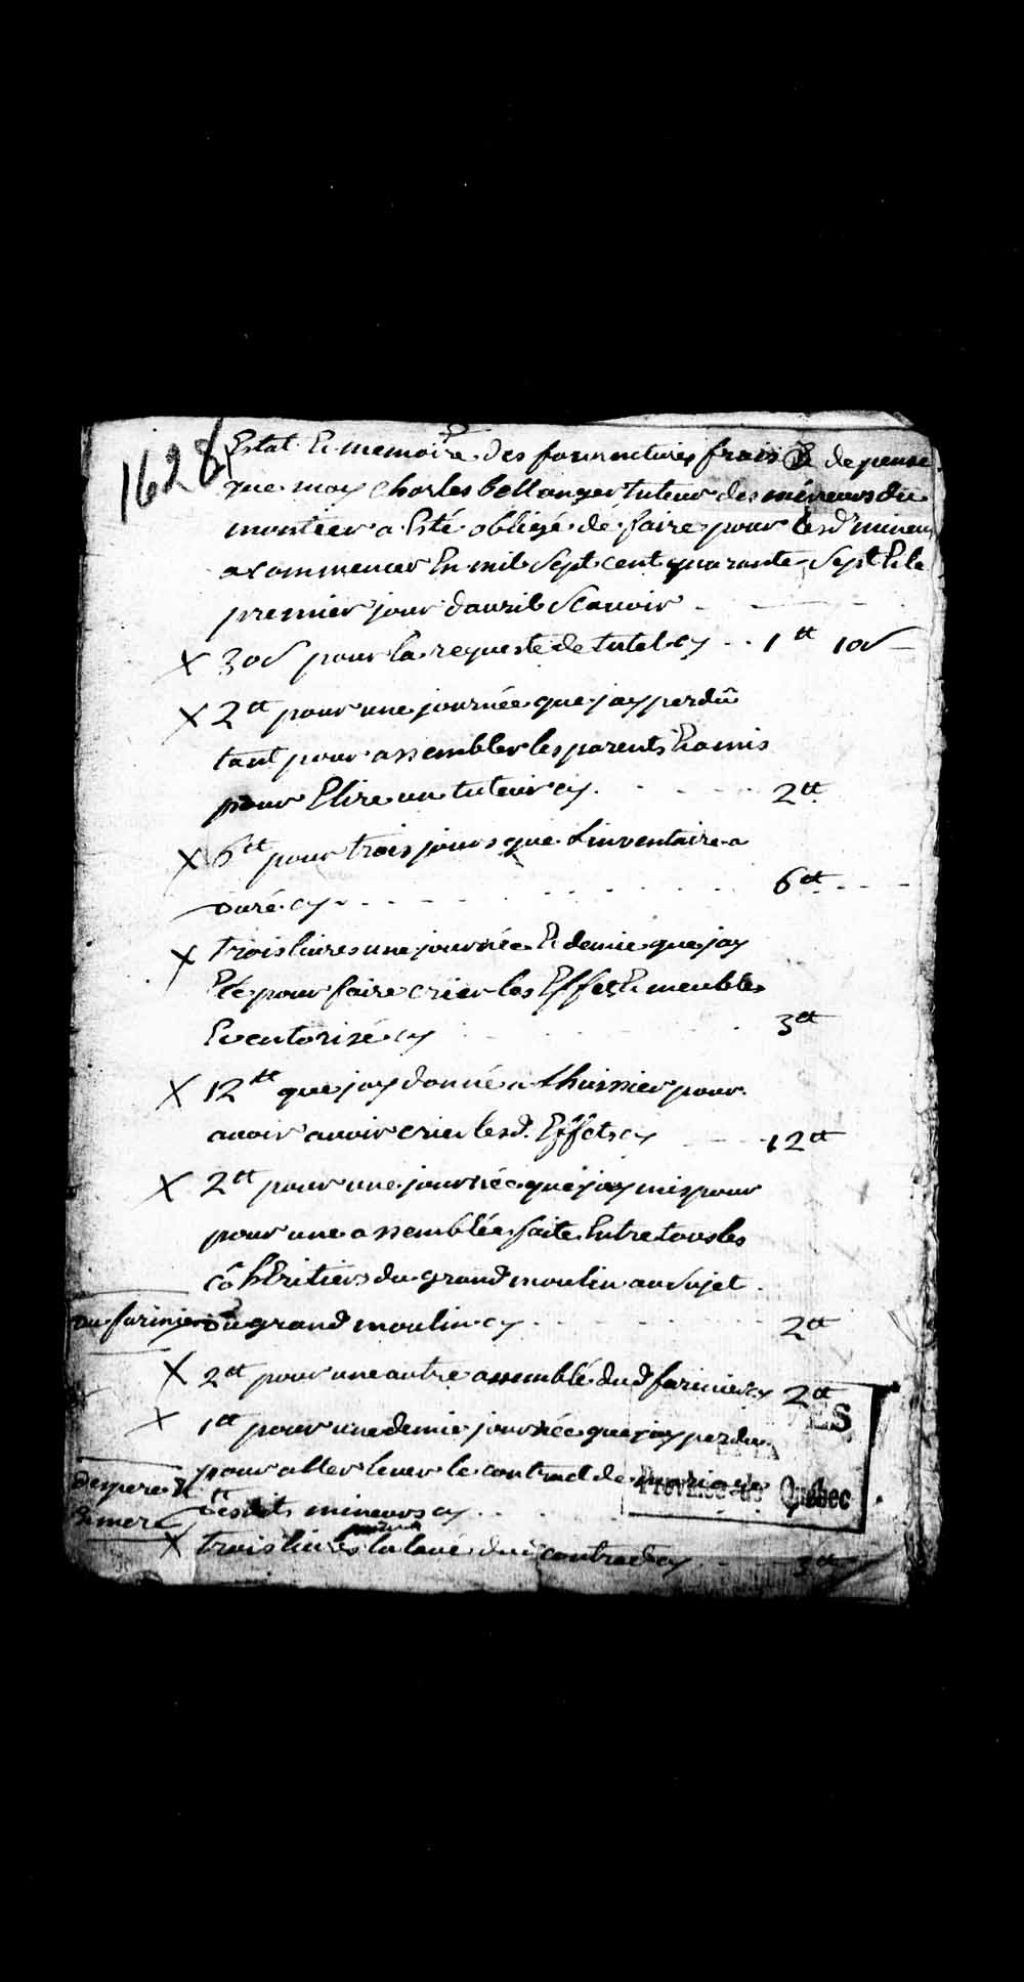 1628
Estat Et memoire des fournitures frais Et depense
que moy Charles bellanger tuteur des mineurs du
montier a Esté obligé de faire pour lesd mineurs
a commencer En mil Sept cent quarante Sept Et le
premier jour davril Scavoir
X 30s pour la requeste de tutel cy 1tt 10s
X 2tt pour une journée que jay perdû
tant pour assembler les parents Et amis
pour Elire un tuteur cy 2tt
X 6tt pour trois jours que Linventaire a
duré cy 6tt
X trois livres une journée Et demie que jay
Eté pour faire crier les Effets Et meubles
Eventorisé cy 3tt
X 12tt que jay donné a Lhuissier pour
avoir avoir crier lesd. Effets cy 12tt
X 2tt pour une journée que jay mis pour
pour une assemblée faite Entre tous les
cô hEritiers du grand moulin au Sujet
du farinier du grand moulin cy 2tt
X 2tt pour une autre assemblé dud farinier cy 2tt
X 1tt pour une demie journée que jay perdu
pour aller lever le contract de mariage
des pere Et
Et mere desdits mineurs cy
X trois livres pour la levé dud contract cy 3tt
ES
Province de Québec